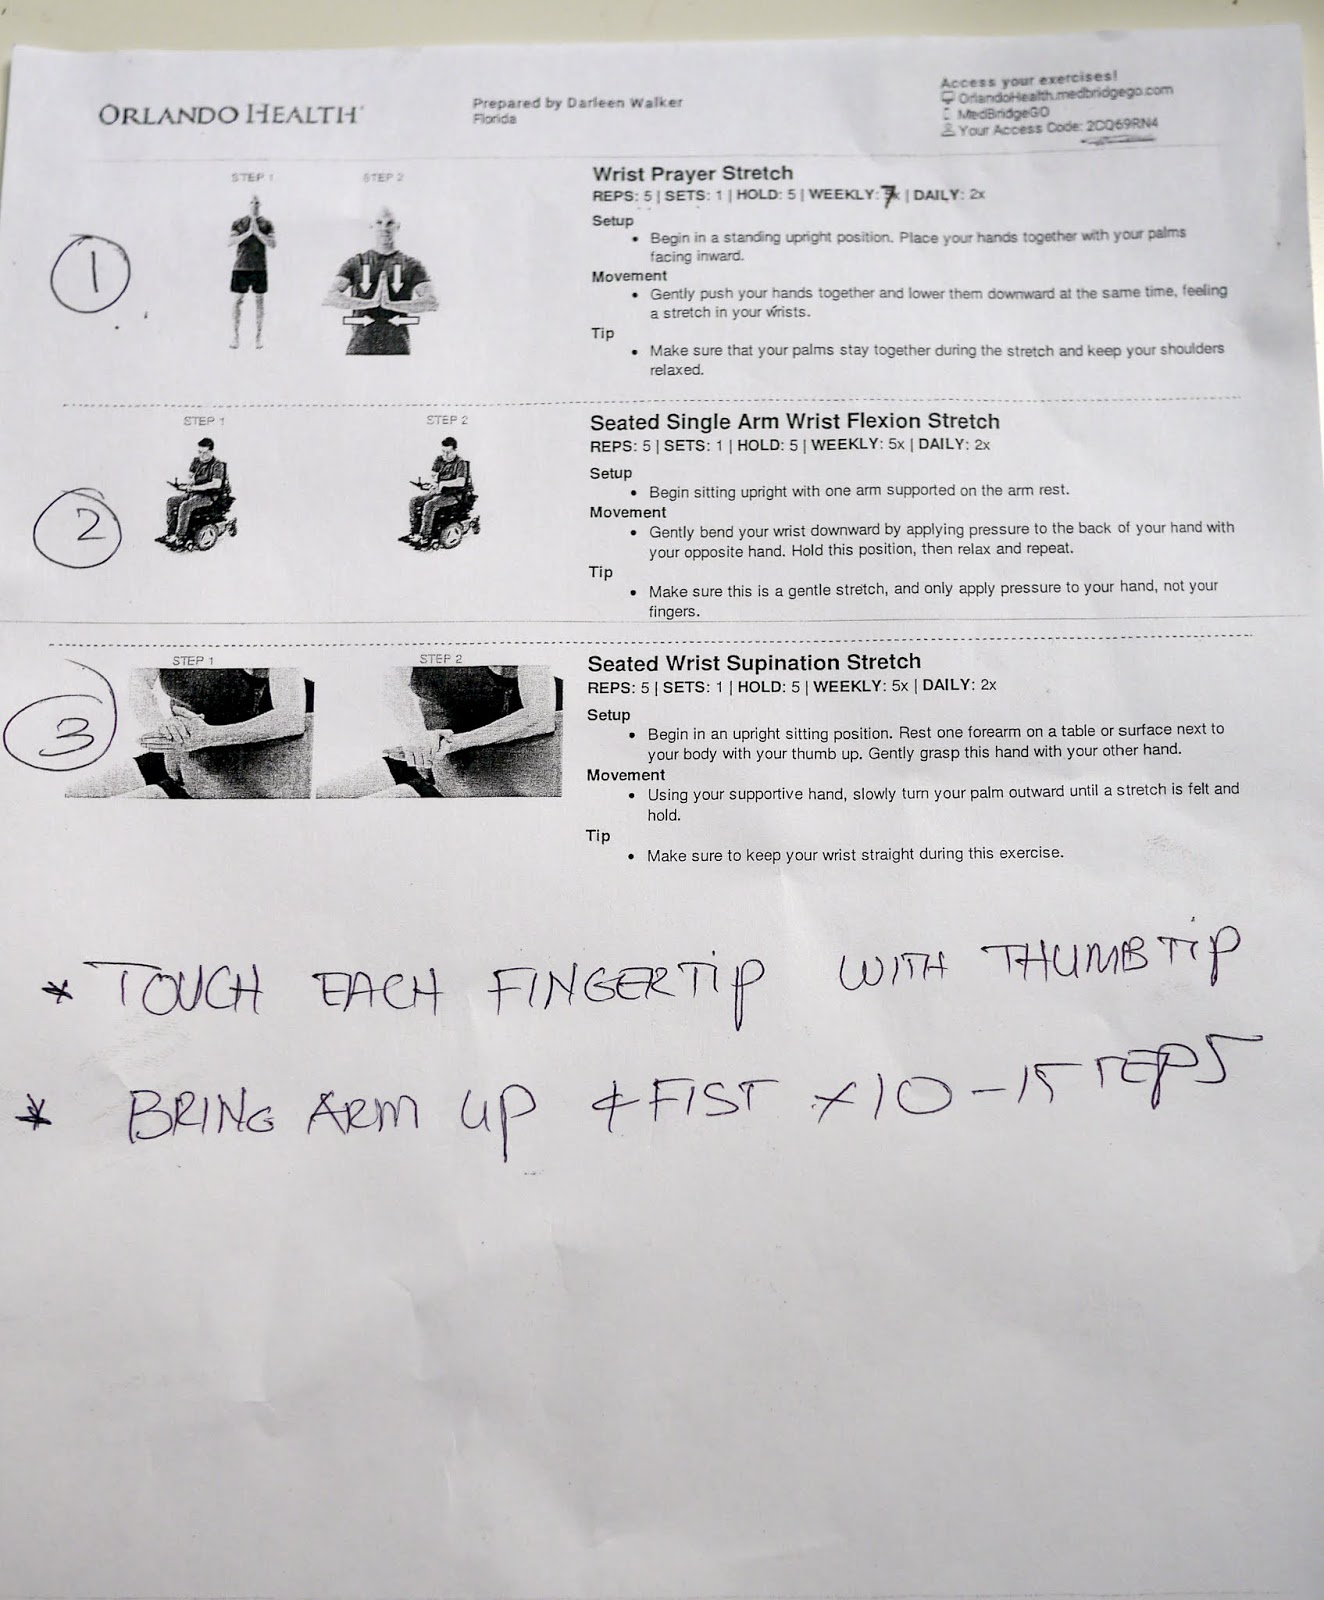 ORLANDO HEALTH
Prepared by Darleen Walker
Florida
Access your exercises!
OrlandoHealth.medbridgego.com
MedBridgeGO
Your Access Code: 2CQ69RN4
1
STEP 1
STEP 2
Wrist Prayer Stretch
REPS: 5 | SETS: 1 | HOLD: 5 | WEEKLY: 7x | DAILY: 2x
Setup
• Begin in a standing upright position. Place your hands together with your palms
facing inward.
Movement
• Gently push your hands together and lower them downward at the same time, feeling
a stretch in your wrists.
Tip
• Make sure that your palms stay together during the stretch and keep your shoulders
relaxed.
2
STEP 1
STEP 2
Seated Single Arm Wrist Flexion Stretch
REPS: 5 | SETS: 1 | HOLD: 5 | WEEKLY: 5x | DAILY: 2x
Setup
• Begin sitting upright with one arm supported on the arm rest.
Movement
• Gently bend your wrist downward by applying pressure to the back of your hand with
your opposite hand. Hold this position, then relax and repeat.
Tip
• Make sure this is a gentle stretch, and only apply pressure to your hand, not your
fingers.
3
STEP 1
STEP 2
Seated Wrist Supination Stretch
REPS: 5 | SETS: 1 | HOLD: 5 | WEEKLY: 5x | DAILY: 2x
Setup
• Begin in an upright sitting position. Rest one forearm on a table or surface next to
your body with your thumb up. Gently grasp this hand with your other hand.
Movement
• Using your supportive hand, slowly turn your palm outward until a stretch is felt and
hold.
Tip
• Make sure to keep your wrist straight during this exercise.
* TOUCH EACH FINGERTIP WITH THUMBTIP
* BRING ARM UP & FIST x10-15 REPS